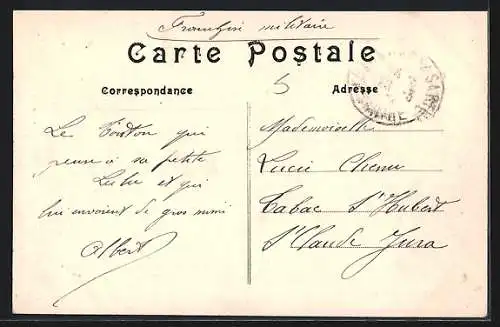 Franchise militaire
Carte Postale
Correspondance
Adresse
Le Tonton qui
pense à sa petite
Lulu et qui
lui envoient de gros mimi
Albert
Mademoiselle
Lucie Chenu
Tabac St Hubert
St Claude Jura